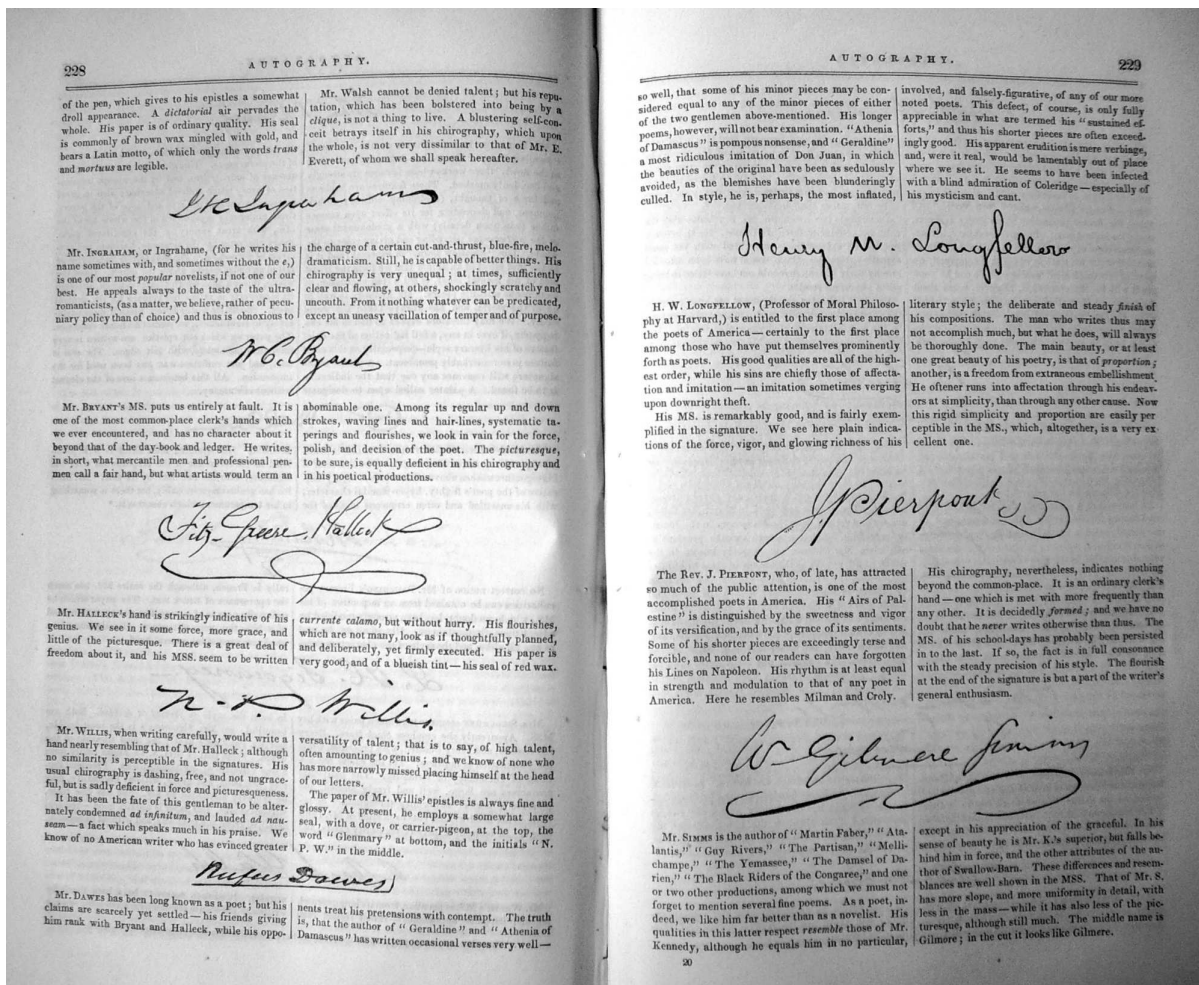 228
AUTOGRAPHY.
of the pen, which gives to his epistles a somewhat
droll appearance. A dictatorial air pervades the
whole. His paper is of ordinary quality. His seal
is commonly of brown wax mingled with gold, and
bears a Latin motto, of which only the words trans
and mortuus are legible.
Mr. Walsh cannot be denied talent; but his repu-
tation, which has been bolstered into being by a
clique, is not a thing to live. A blustering self-con-
ceit betrays itself in his chirography, which upon
the whole, is not very dissimilar to that of Mr. E.
Everett, of whom we shall speak hereafter.
J H Ingraham
Mr. INGRAHAM, or Ingrahame, (for he writes his
name sometimes with, and sometimes without the e,)
is one of our most popular novelists, if not one of our
best. He appeals always to the taste of the ultra-
romanticists, (as a matter, we believe, rather of pecu-
niary policy than of choice) and thus is obnoxious to
the charge of a certain cut-and-thrust, blue-fire, melo-
dramaticism. Still, he is capable of better things. His
chirography is very unequal; at times, sufficiently
clear and flowing, at others, shockingly scratchy and
uncouth. From it nothing whatever can be predicated,
except an uneasy vacillation of temper and of purpose.
W. C. Bryant
Mr. BRYANT'S MS. puts us entirely at fault. It is
one of the most common-place clerk's hands which
we ever encountered, and has no character about it
beyond that of the day-book and ledger. He writes,
in short, what mercantile men and professional pen-
men call a fair hand, but what artists would term an
abominable one. Among its regular up and down
strokes, waving lines and hair-lines, systematic ta-
perings and flourishes, we look in vain for the force,
polish, and decision of the poet. The picturesque,
to be sure, is equally deficient in his chirography and
in his poetical productions.
Fitz-Greene Halleck
Mr. HALLECK'S hand is strikingly indicative of his
genius. We see in it some force, more grace, and
little of the picturesque. There is a great deal of
freedom about it, and his MSS. seem to be written
currente calamo, but without hurry. His flourishes,
which are not many, look as if thoughtfully planned,
and deliberately, yet firmly executed. His paper is
very good, and of a blueish tint—his seal of red wax.
N. P. Willis.
Mr. WILLIS, when writing carefully, would write a
hand nearly resembling that of Mr. Halleck; although
no similarity is perceptible in the signatures. His
usual chirography is dashing, free, and not ungrace-
ful, but is sadly deficient in force and picturesqueness.
It has been the fate of this gentleman to be alter-
nately condemned ad infinitum, and lauded ad nau-
seam—a fact which speaks much in his praise. We
know of no American writer who has evinced greater
versatility of talent; that is to say, of high talent,
often amounting to genius; and we know of none who
has more narrowly missed placing himself at the head
of our letters.
The paper of Mr. Willis' epistles is always fine and
glossy. At present, he employs a somewhat large
seal, with a dove, or carrier-pigeon, at the top, the
word "Glenmary" at bottom, and the initials "N.
P. W." in the middle.
Rufus Dawes
Mr. DAWES has been long known as a poet; but his
claims are scarcely yet settled—his friends giving
him rank with Bryant and Halleck, while his oppo-
nents treat his pretensions with contempt. The truth
is, that the author of "Geraldine" and "Athenia of
Damascus" has written occasional verses very well—
AUTOGRAPHY.
229
so well, that some of his minor pieces may be con-
sidered equal to any of the minor pieces of either
of the two gentlemen above-mentioned. His longer
poems, however, will not bear examination. "Athenia
of Damascus" is pompous nonsense, and "Geraldine"
a most ridiculous imitation of Don Juan, in which
the beauties of the original have been as sedulously
avoided, as the blemishes have been blunderingly
culled. In style, he is, perhaps, the most inflated,
involved, and falsely-figurative, of any of our more
noted poets. This defect, of course, is only fully
appreciable in what are termed his "sustained ef-
forts," and thus his shorter pieces are often exceed-
ingly good. His apparent erudition is mere verbiage,
and, were it real, would be lamentably out of place
where we see it. He seems to have been infected
with a blind admiration of Coleridge—especially of
his mysticism and cant.
Henry W. Longfellow
H. W. LONGFELLOW, (Professor of Moral Philoso-
phy at Harvard,) is entitled to the first place among
the poets of America—certainly to the first place
among those who have put themselves prominently
forth as poets. His good qualities are all of the high-
est order, while his sins are chiefly those of affecta-
tion and imitation—an imitation sometimes verging
upon downright theft.
His MS. is remarkably good, and is fairly exem-
plified in the signature. We see here plain indica-
tions of the force, vigor, and glowing richness of his
literary style; the deliberate and steady finish of
his compositions. The man who writes thus may
not accomplish much, but what he does, will always
be thoroughly done. The main beauty, or at least
one great beauty of his poetry, is that of proportion;
another, is a freedom from extraneous embellishment.
He oftener runs into affectation through his endeav-
ors at simplicity, than through any other cause. Now
this rigid simplicity and proportion are easily per
ceptible in the MS., which, altogether, is a very ex-
cellent one.
J. Pierpont
The Rev. J. PIERPONT, who, of late, has attracted
so much of the public attention, is one of the most
accomplished poets in America. His "Airs of Pal-
estine" is distinguished by the sweetness and vigor
of its versification, and by the grace of its sentiments.
Some of his shorter pieces are exceedingly terse and
forcible, and none of our readers can have forgotten
his Lines on Napoleon. His rhythm is at least equal
in strength and modulation to that of any poet in
America. Here he resembles Milman and Croly.
His chirography, nevertheless, indicates nothing
beyond the common-place. It is an ordinary clerk's
hand—one which is met with more frequently than
any other. It is decidedly formed; and we have no
doubt that he never writes otherwise than thus. The
MS. of his school-days has probably been persisted
in to the last. If so, the fact is in full consonance
with the steady precision of his style. The flourish
at the end of the signature is but a part of the writer's
general enthusiasm.
W Gilmore Simms
Mr. SIMMS is the author of "Martin Faber," "Ata-
lantis," "Guy Rivers," "The Partisan," "Melli-
champe," "The Yemassee," "The Damsel of Da-
rien," "The Black Riders of the Congaree," and one
or two other productions, among which we must not
forget to mention several fine poems. As a poet, in-
deed, we like him far better than as a novelist. His
qualities in this latter respect resemble those of Mr.
Kennedy, although he equals him in no particular,
except in his appreciation of the graceful. In his
sense of beauty he is Mr. K.'s superior, but falls be-
hind him in force, and the other attributes of the au-
thor of Swallow-Barn. These differences and resem-
blances are well shown in the MSS. That of Mr. S.
has more slope, and more uniformity in detail, with
less in the mass—while it has also less of the pic-
turesque, although still much. The middle name is
Gilmore; in the cut it looks like Gilmere.
20